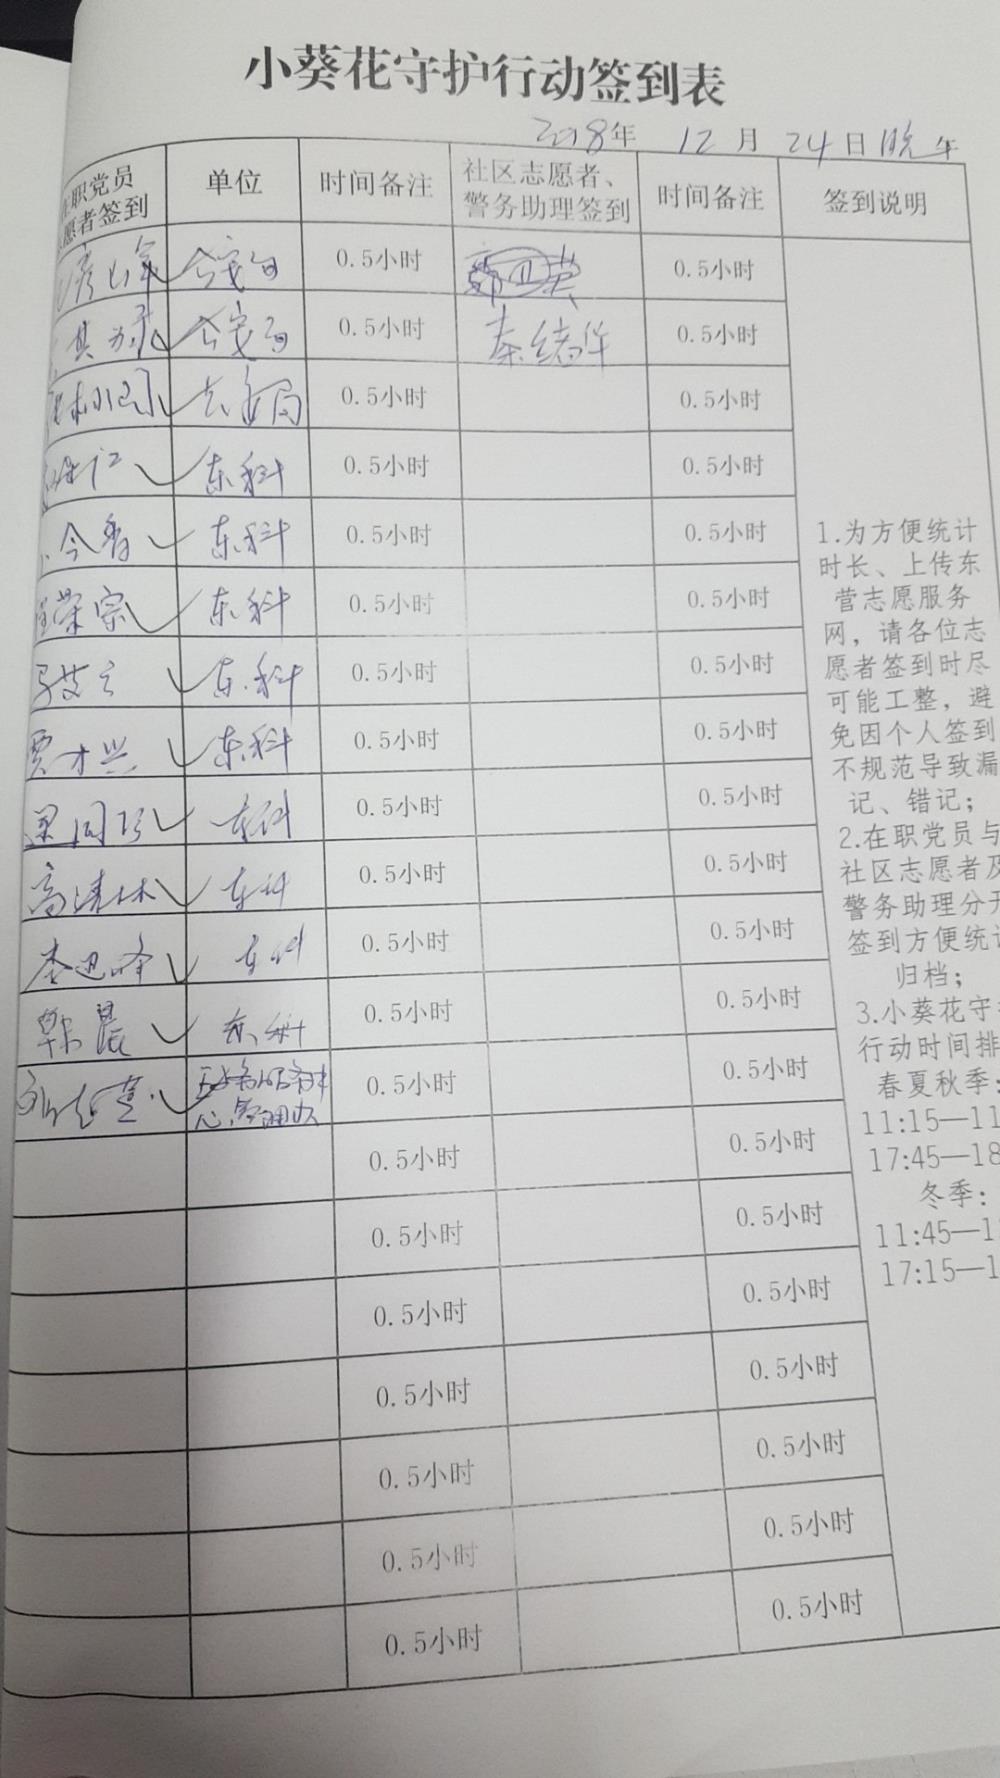 小葵花守护行动签到表
2018年 12月 24日晚午
职党员 单位 时间备注 社区志愿者、 时间备注 签到说明
愿者签到 警务助理签到
0.5小时 0.5小时
0.5小时 秦绪华 0.5小时
0.5小时 0.5小时
东科 0.5小时 0.5小时
今香 东科 0.5小时 0.5小时
荣宗 东科 0.5小时 0.5小时
东科 0.5小时 0.5小时
贾才兴 东科 0.5小时 0.5小时
东科 0.5小时 0.5小时
高清林 东科 0.5小时 0.5小时
李迎峰 东科 0.5小时 0.5小时
韩晨 东科 0.5小时 0.5小时
0.5小时 0.5小时
0.5小时 0.5小时
0.5小时 0.5小时
0.5小时 0.5小时
0.5小时 0.5小时
0.5小时 0.5小时
0.5小时 0.5小时
0.5小时 0.5小时
1.为方便统计
时长、上传东
营志愿服务
网，请各位志
愿者签到时尽
可能工整，避
免因个人签到
不规范导致漏
记、错记；
2.在职党员与
社区志愿者及
警务助理分开
签到方便统计
归档；
3.小葵花守
行动时间排
春夏秋季：
11:15—11
17:45—18
冬季：
11:45—1
17:15—1